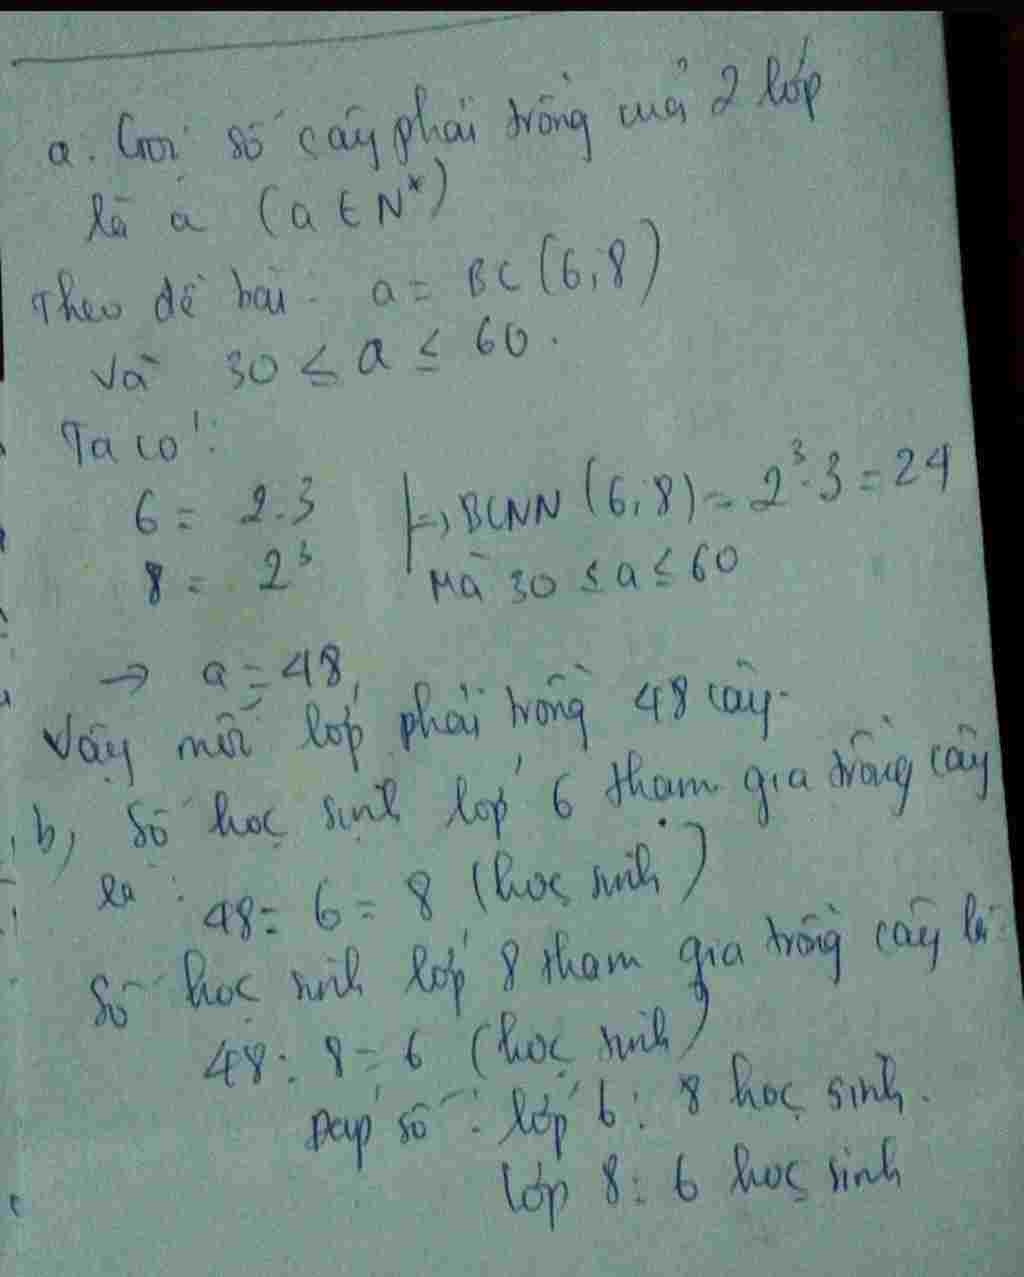 a. Gọi số cây phải trồng của 2 lớp
là a (a ∈ N*)
Theo đề bài: a = BC (6,8)
và 30 ≤ a ≤ 60.
Ta có:
6 = 2.3 |=> BCNN (6,8) = 2³.3 = 24
8 = 2³ Mà 30 ≤ a ≤ 60
→ a = 48,
Vậy mỗi lớp phải trồng 48 cây.
b, Số học sinh lớp 6 tham gia trồng cây
là: 48: 6 = 8 (học sinh)
Số học sinh lớp 8 tham gia trồng cây là
48: 8 = 6 (học sinh)
Đáp số: lớp 6: 8 học sinh.
lớp 8: 6 học sinh